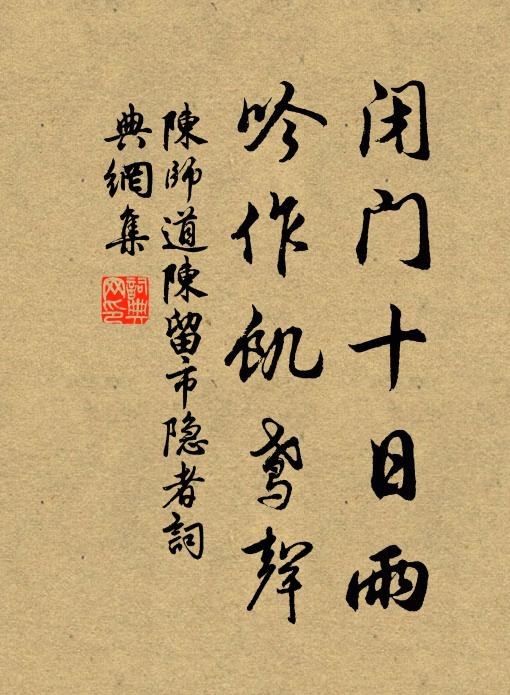 闭门十日雨
吟作飢鸢聲
陳師道陳留市隐者詞
典網集
詞典网印